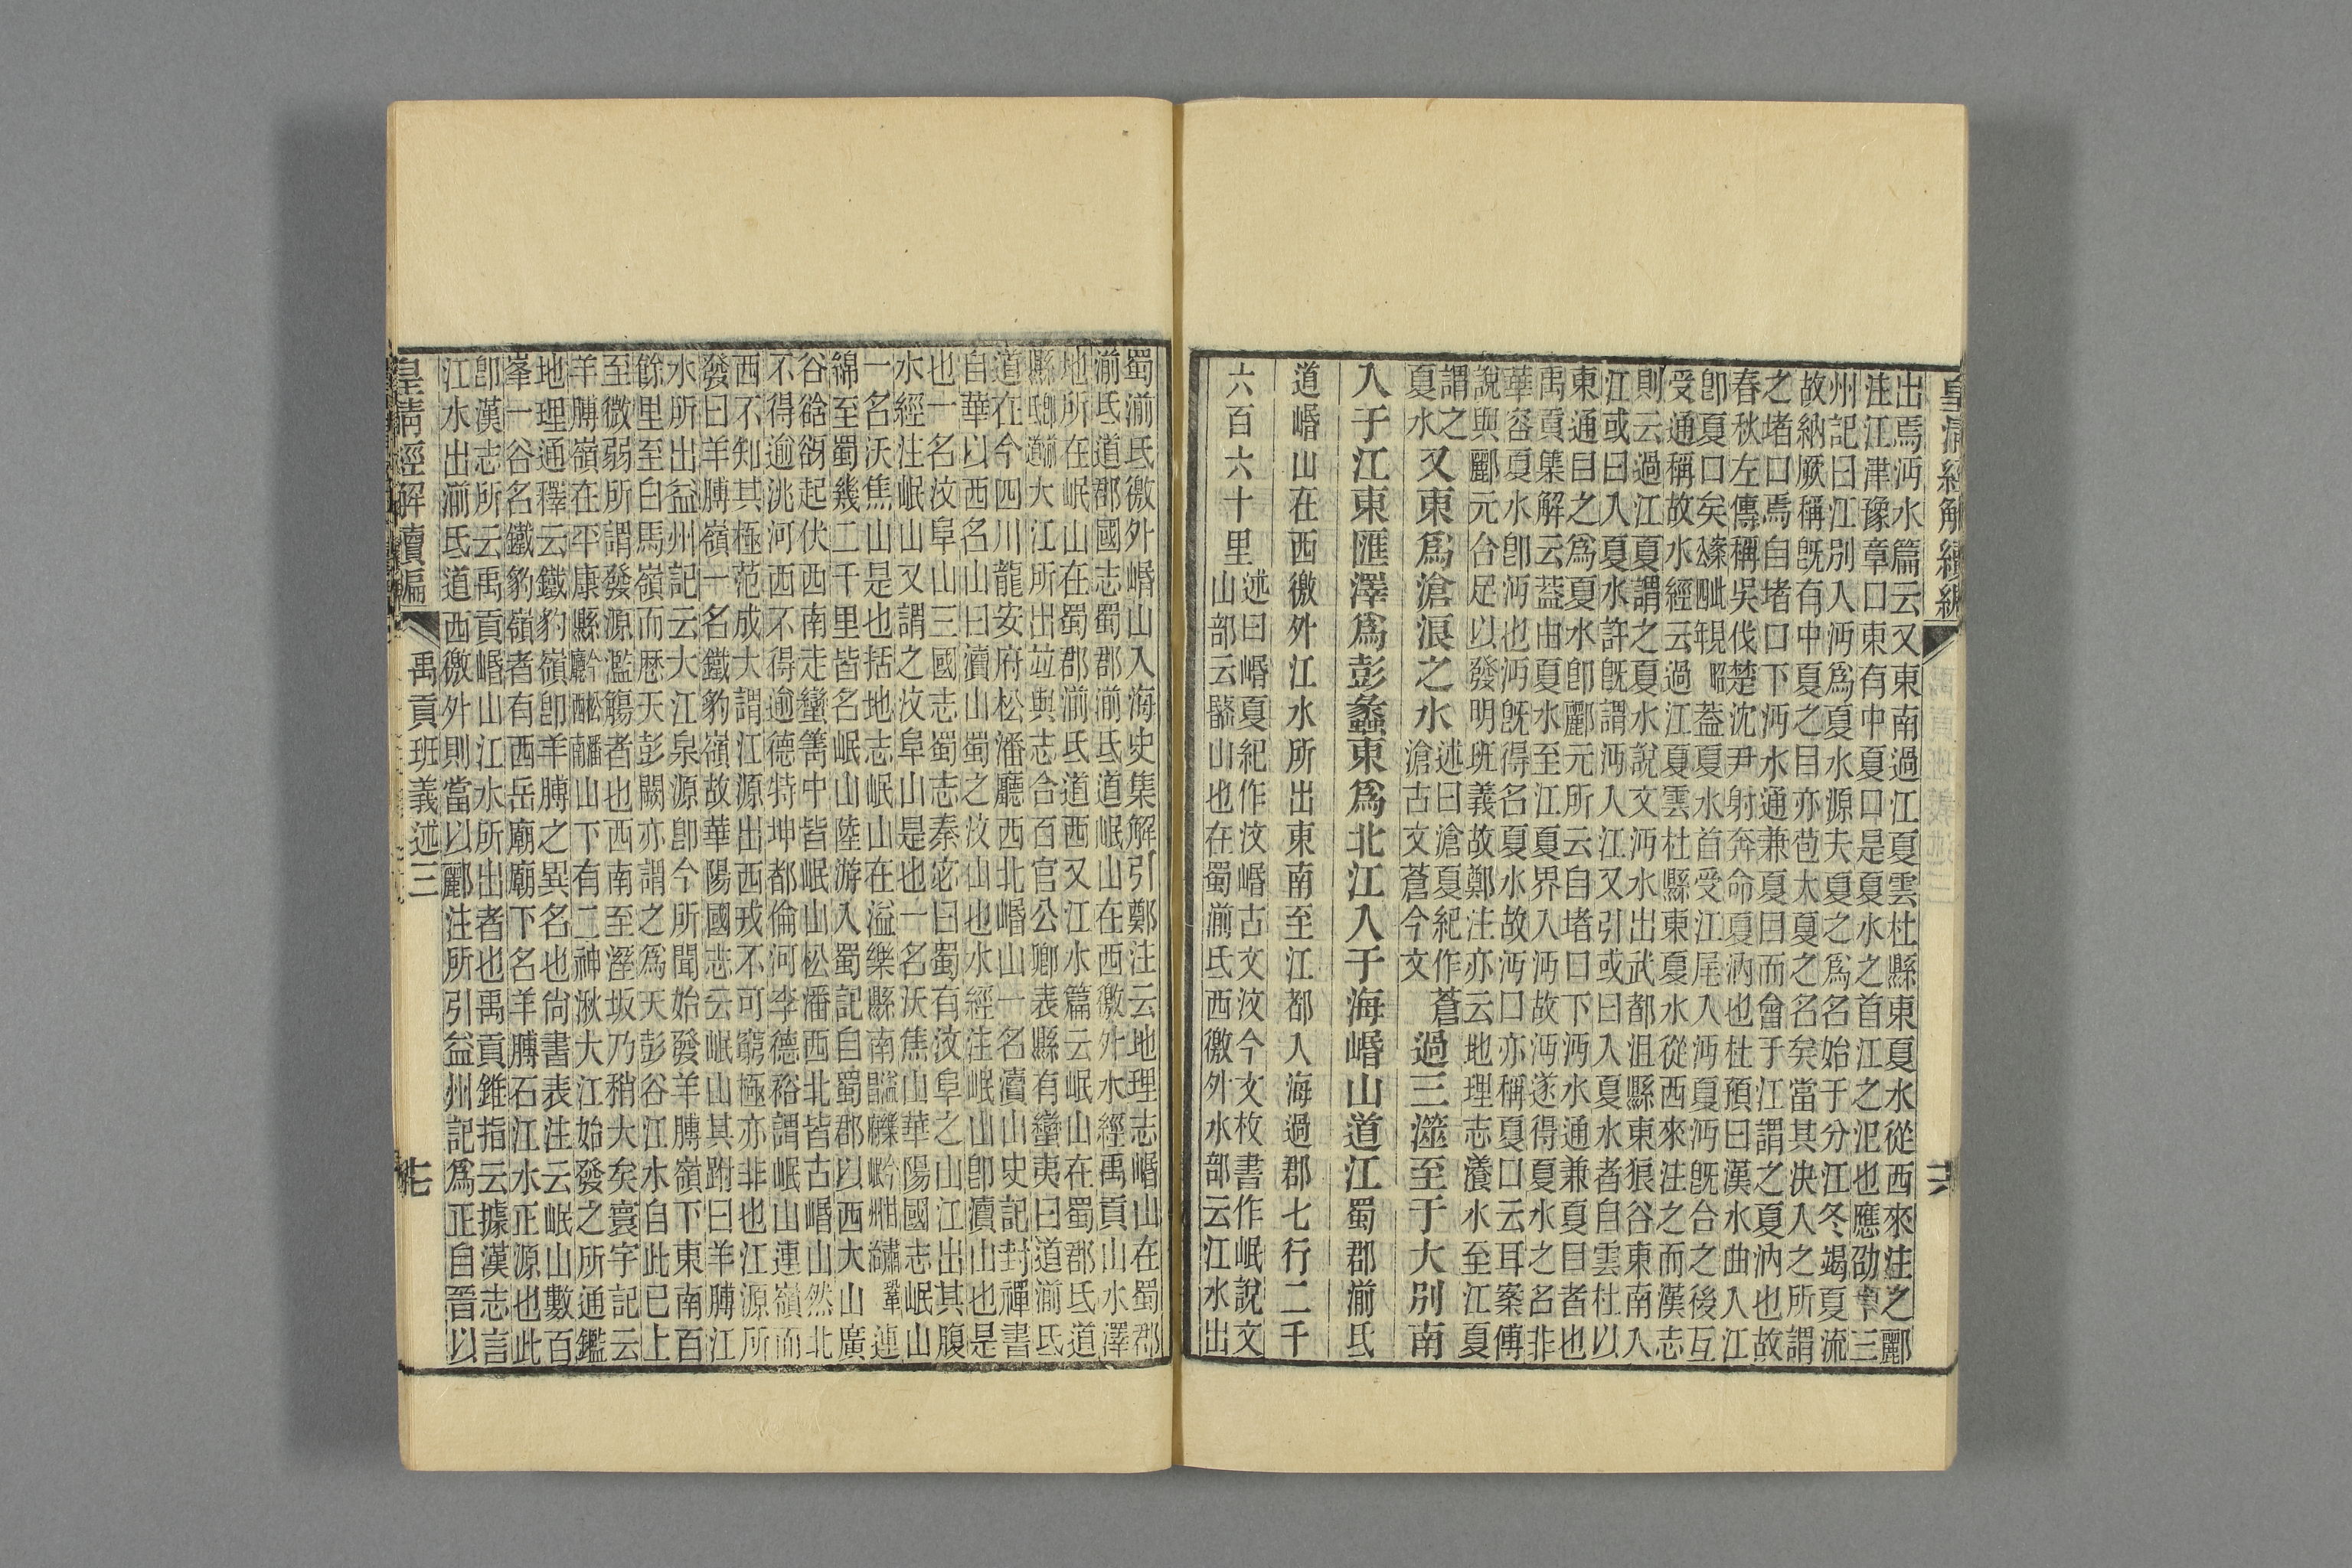 皇清經解續編
出焉沔水篇云又東南過江夏雲杜縣東夏水從西來注之酈
注江津豫章口東有中夏口是夏水之首江之汜也應劭十三
州記曰江別入沔爲夏水源夫夏之爲名始于分江冬竭夏流
故納厥稱旣有中夏之目亦苞大夏之名矣當其決入之所謂
之堵口焉自堵口下沔水通兼夏目而會于江謂之夏汭也故
春秋左傳稱吳伐楚沈尹射奔命夏汭也杜預曰漢水曲入江
卽夏口矣蓋夏水首受江尾入沔夏沔旣合之後互
受通稱故水經云過江夏雲杜縣東夏水從西來注之而漢志
則云過江夏謂之夏水說文沔水出武都沮縣東狼谷東南入
江或曰入夏水許旣謂沔入江又引或曰入夏水者自雲杜以
東通目之爲夏水卽酈元所云自堵口下沔水通兼夏目者也
禹貢集解云蓋由夏水至江夏界入沔故沔遂得夏水之名非
華容夏水卽沔也沔旣得名夏水故沔口亦稱夏口云耳案傅
說與酈元合足以發明班義故鄭注亦云地理志瀁水至江夏
謂之夏水又東爲滄浪之水述曰滄夏紀作蒼滄古文蒼今文過三澨至于大別南
入于江東匯澤爲彭蠡東爲北江入于海㟭山道江蜀郡湔氐
道㟭山在西徼外江水所出東南至江都入海過郡七行二千
六百六十里述曰㟭夏紀作汶㟭古文汶今文枚書作岷說文
山部云山也在蜀湔氐西徼外水部云江水出
蜀湔氐徼外㟭山入海史集解引鄭注云地理志㟭山在蜀郡
湔氐道郡國志蜀郡湔氐道岷山在西徼外水經禹貢山水澤
地所在岷山在蜀郡湔氐道西又江水篇云岷山在蜀郡氐道
縣氐道卽湔氐道大江所出竝與志合百官公卿表縣有蠻夷曰道湔氐
道在今四川龍安府松潘廳西北㟭山一名瀆山史記封禪書
自華以西名山曰瀆山蜀之汶山也水經注岷山卽瀆山也是
也一名汶阜山三國志蜀志秦宓曰蜀有汶阜之山江出其腹
水經注岷山又謂之汶阜山是也一名沃焦山華陽國志岷山
一名沃焦山是也括地志岷山在溢樂縣南連
綿至蜀幾二千里皆名岷山陸游入蜀記自蜀郡以西大山廣
谷谽谺起伏西南走蠻箐中皆岷山松潘西北皆古㟭山然北
不得逾洮河西不得逾德特坤都倫河李德裕謂岷山連嶺而
西不知其極范成大謂江源出西戎不可窮極亦非也江源所
發曰羊膊嶺一名鐵豹嶺故華陽國志云岷山其跗曰羊膊江
水所出益州記云大江泉源卽今所聞始發羊膊嶺下東南百
餘里至白馬嶺而歷天彭闕亦謂之爲天彭谷江水自此已上
至微弱所謂發源濫觴者也西南至溼坂乃稍大矣寰宇記云
羊膊嶺在平康縣今松潘廳西南山下有二神湫大江始發之所通鑑
地理通釋云鐵豹嶺卽羊膊之異名也尚書表注云岷山數百
峯一谷名鐵豹嶺者有西岳廟廟下名羊膊石江水正源也此
卽漢志所云禹貢㟭山江水所出者也禹貢錐指云據漢志言
江水出湔氐道西徼外則當以酈注所引益州記爲正自晉以
皇清經解續編 禹貢班義述三